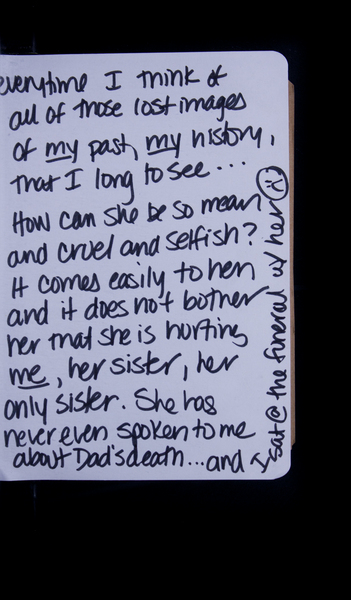 everytime I think of
all of those lost images
of my past, my history,
that I long to see...
How can she be so mean
and cruel and selfish?
It comes easily to her
and it does not bother
her that she is hurting
me, her sister, her
only sister. She has
never even spoken to me
about Dad's death...and I
sat @ the funeral w/ her